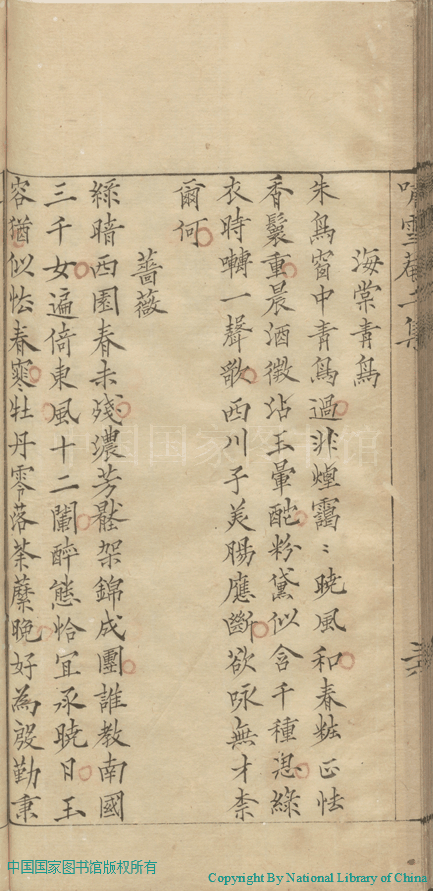 嘯雪菴二集
海棠青鳥
朱鳥窗中青鳥過非煙靄〻曉風和春粧正怯
香鬟重晨酒微沾玉暈酡粉黛似含千種思綠
衣時囀一聲歌西川子美腸應斷欲咏無才柰
爾何
薔薇
綠暗西園春未殘濃芳䰐架錦成團誰教南國
三千女遍倚東風十二闌醉態恰宜承曉日玉
容猶似怯春寒牡丹零落荼蘼晚好為殷勤秉
中国国家图书馆
中国国家图书馆版权所有
Copyright By National Library of China